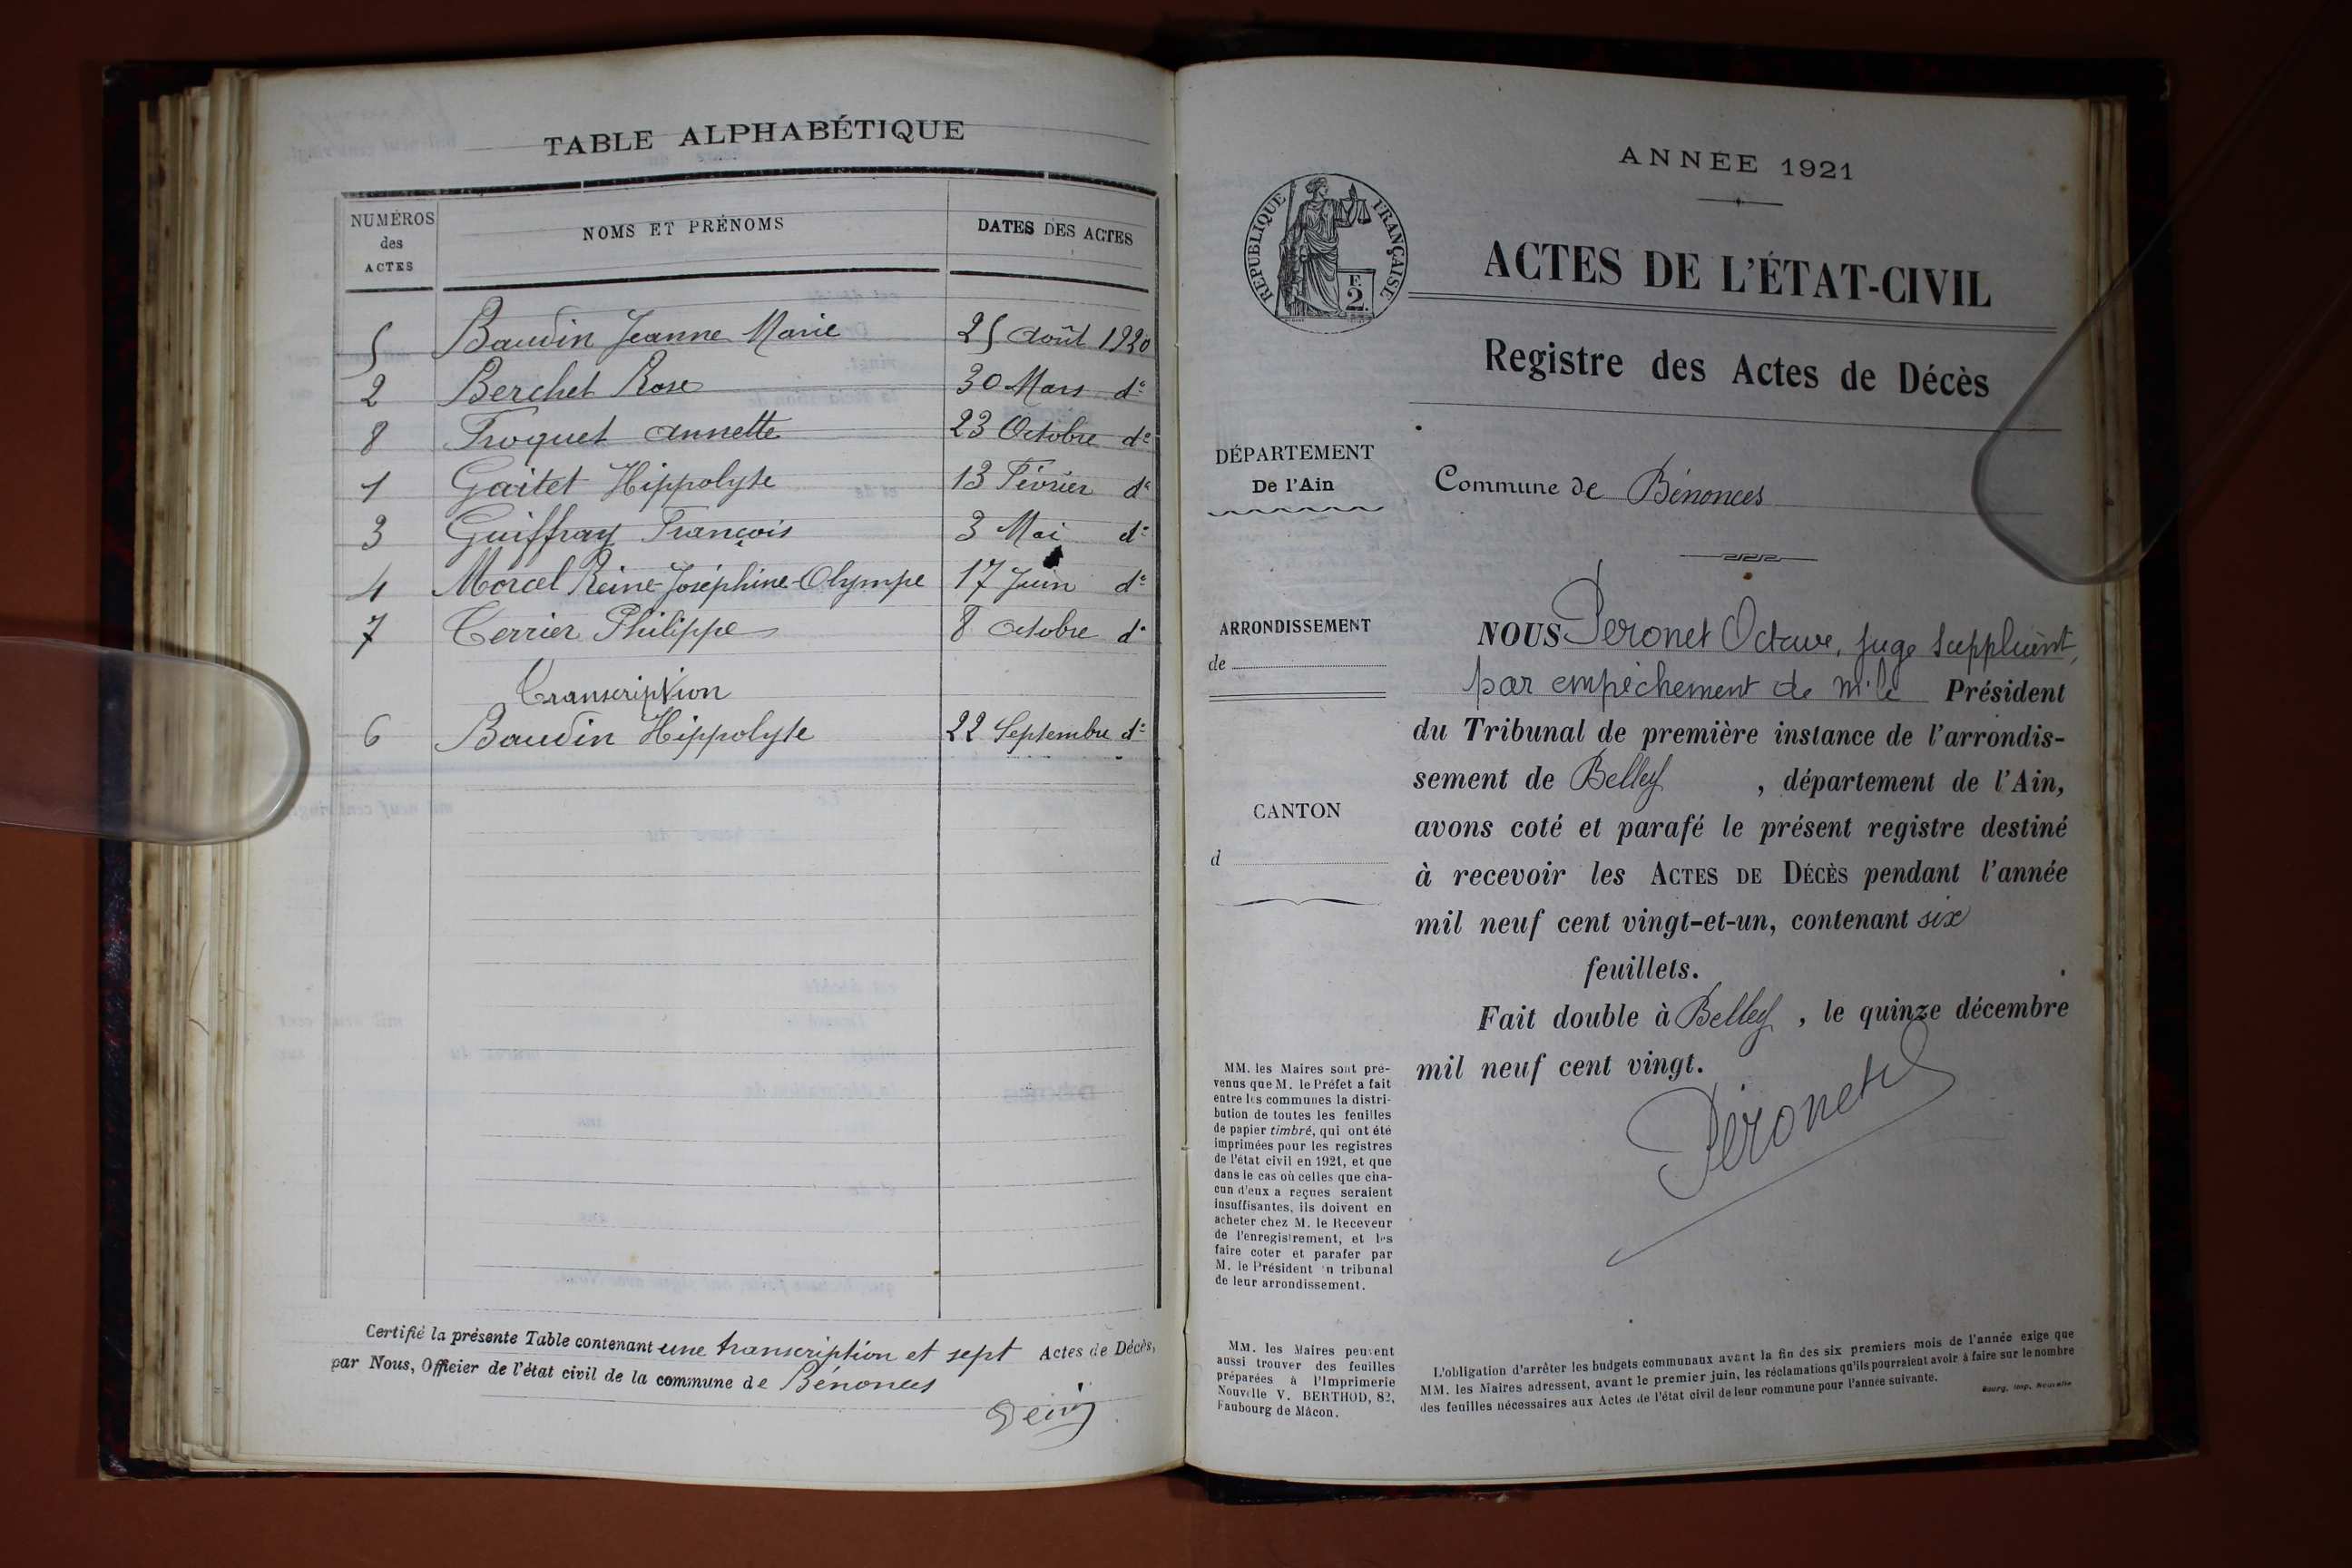 TABLE ALPHABÉTIQUE
NUMÉROS des ACTES NOMS ET PRÉNOMS DATES DES ACTES
5 Baudin Jeanne Marie 25 Août 1920
2 Berchet Rose 30 Mars do
8 Froquet Annette 23 Octobre do
1 Gaitet Hippolyte 13 Février do
3 Guiffray François 3 Mai do
4 Morcel Reine-Joséphine-Olympe 17 Juin do
7 Terrier Philippe 8 Octobre do
Transcription
6 Baudin Hippolyte 22 Septembre do
Certifié la présente Table contenant une transcription et sept Actes de Décès,
par Nous, Officier de l'état civil de la commune de Bénonces
ANNÉE 1921
RÉPUBLIQUE FRANÇAISE
F.
2.
ACTES DE L'ÉTAT-CIVIL
Registre des Actes de Décès
DÉPARTEMENT
De l'Ain
Commune de Bénonces
ARRONDISSEMENT
de
CANTON
d
NOUS Peronet Octave, juge suppléant,
par empêchement de Mr le Président
du Tribunal de première instance de l'arrondis-
sement de Belley , département de l'Ain,
avons coté et parafé le présent registre destiné
à recevoir les ACTES DE DÉCÈS pendant l'année
mil neuf cent vingt-et-un, contenant six
feuillets.
Fait double à Belley , le quinze décembre
mil neuf cent vingt.
Péronet
MM. les Maires sont pré-
venus que M. le Préfet a fait
entre les communes la distri-
bution de toutes les feuilles
de papier timbré, qui ont été
imprimées pour les registres
de l'état civil en 1921, et que
dans le cas où celles que cha-
cun d'eux a reçues seraient
insuffisantes, ils doivent en
acheter chez M. le Receveur
de l'enregistrement, et les
faire coter et parafer par
M. le Président du tribunal
de leur arrondissement.
MM. les Maires peuvent
aussi trouver des feuilles
préparées à l'Imprimerie
Nouvelle V. BERTHOD, 82,
Faubourg de Mâcon.
L'obligation d'arrêter les budgets communaux avant la fin des six premiers mois de l'année exige que
MM. les Maires adressent, avant le premier juin, les réclamations qu'ils pourraient avoir à faire sur le nombre
des feuilles nécessaires aux Actes de l'état civil de leur commune pour l'année suivante.
Bourg, Imp. Nouvelle